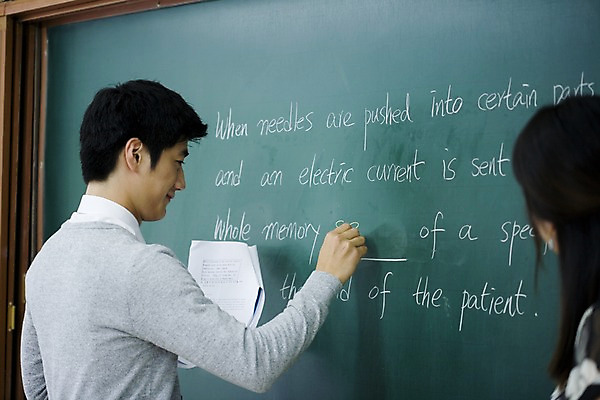 When needles are pushed into certain parts
and an electric current is sent
Whole memory of a
of the patient.